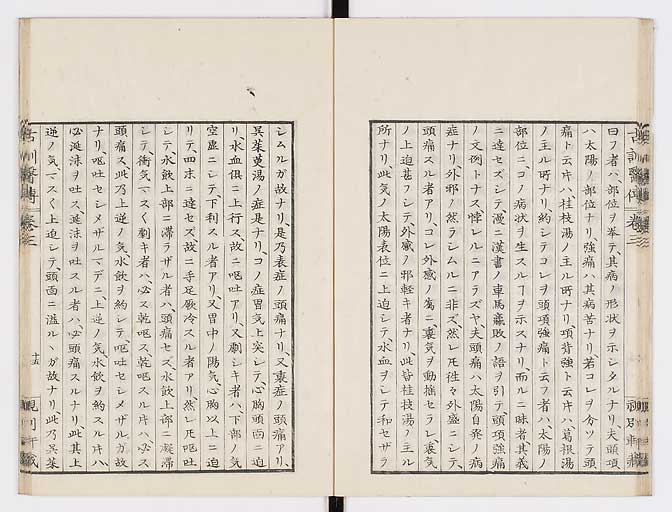 曰フ者ハ部位ヲ挙テ、其病ノ形状ヲ示シタルナリ、夫頭項
ハ太陽ノ部位ナリ、強痛ハ其病苦ナリ、若コレヲ分ツテ頭
痛ト云片ハ桂枝湯ノ主ル所ナリ、項背強ト云片ハ葛根湯
ノ主ル所ナリ、約シテコレヲ頭項強痛ト云フ者ハ、太陽ノ
部位ニ、コノ病状ヲ生スルヿヲ示スナリ、而ルニ味者其義
ニ達セズシテ漫ニ漢書ノ車馬羸敗ノ語ヲ引テ、頭項強痛
ノ文例トナス悖レルニアラズヤ、夫頭痛ハ太陽自発ノ病
症ナリ、外邪ノ然ラシムルニ非ズ、然レ𪜈徃々外盛ニシテ、
頭痛スル者アリ、コレ外感ノ為ニ、裏気ヲ動揺セラレ、裏気
ノ上迫甚フシテ、外感ノ邪軽キ者ナリ、此皆桂枝湯ノ主ル
所ナリ、此気ノ太陽表位ニ上迫シテ、水血ヲシテ和セザラ
シムルガ故ナリ、是乃表症ノ頭痛ナリ、又裏症ノ頭痛アリ、
呉茱萸湯ノ症是ナリ、コノ症胃気上突シテ、心胸頭面ニ迫
リ、水血倶ニ上行ス、故ニ嘔吐アリ、又劇シキ者ハ、下部ノ気
空虚ニシテ、下利スル者アリ、又胃中ノ陽気、心胸以上ニ迫
リテ、四末ニ達セズ、故ニ手足厥冷スル者アリ、然レ𪜈嘔吐
シテ、水飲上部ニ滞ラザル者ハ、頭痛セズ、水飲上部ニ凝滞
シテ、衝気マスく劇キ者ハ、必ス乾嘔ス、乾嘔スル片ハ必ス
頭痛ス、此乃上逆ノ気、水飲ヲ約シテ、嘔吐セシメザルガ故
ナリ、嘔吐セシメザルマデニ、上逆ノ気、水飲ヲ約スル片ハ、
必涎沫ヲ吐ス、涎沫ヲ吐スル者ハ、必頭痛スルナリ、此其上
逆ノ気、マスく上迫シテ、頭面ニ溢ルヽガ故ナリ、此乃呉茱
古訓醫傳 巻三
十五